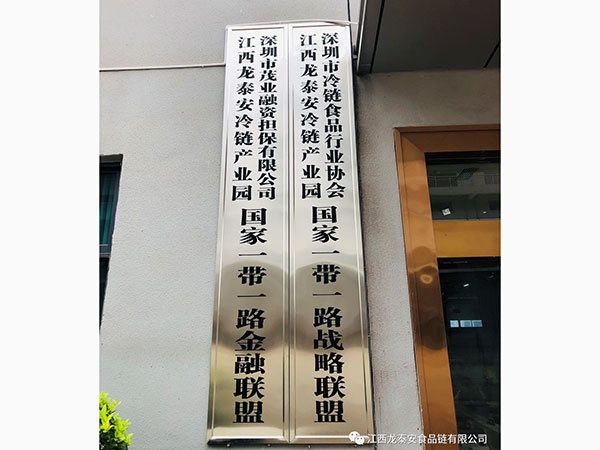 深圳市冷链食品行业协会
江西龙泰安冷链产业园
国家一带一路战略联盟
深圳市茂业融资担保有限公司
江西龙泰安冷链产业园
国家一带一路金融联盟
江西龙泰安食品链有限公司